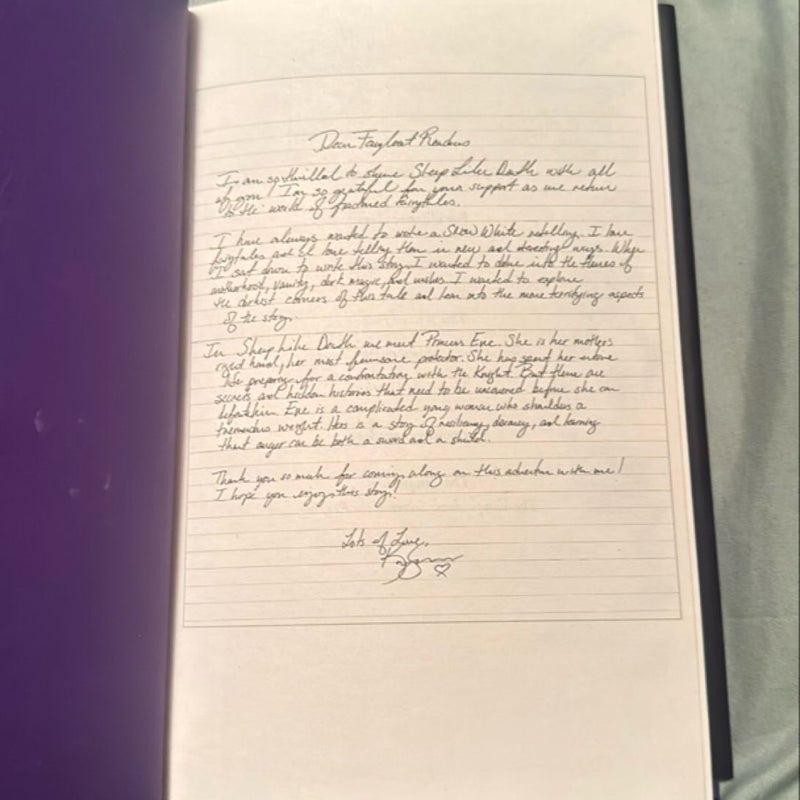 Dear Fairyloot Readers
I am so thrilled to share Sleep Like Death with all
of you! I'm so grateful for your support as we return
to the world of fractured fairytales.
I have always wanted to write a Snow White retelling. I love
fairytales and I love telling them in new and interesting ways. When
I sat down to write this story I wanted to delve into the themes of
motherhood, vanity, dark magic, and wishes. I wanted to explore
the darkest corners of this tale and lean into the more terrifying aspects
of the story.
In Sleep Like Death we meet Princess Eve. She is her mother's
right hand, her most fearsome protector. She has spent her entire
life preparing for a confrontation with the Knight. But there are
secrets and hidden histories that need to be uncovered before she can
defeat him. Eve is a complicated young woman who shoulders a
tremendous weight. Hers is a story of resiliency, and learning
that anger can be both a sword and a shield.
Thank you so much for coming along on this adventure with me!
I hope you enjoy this story!
Lots of Love,